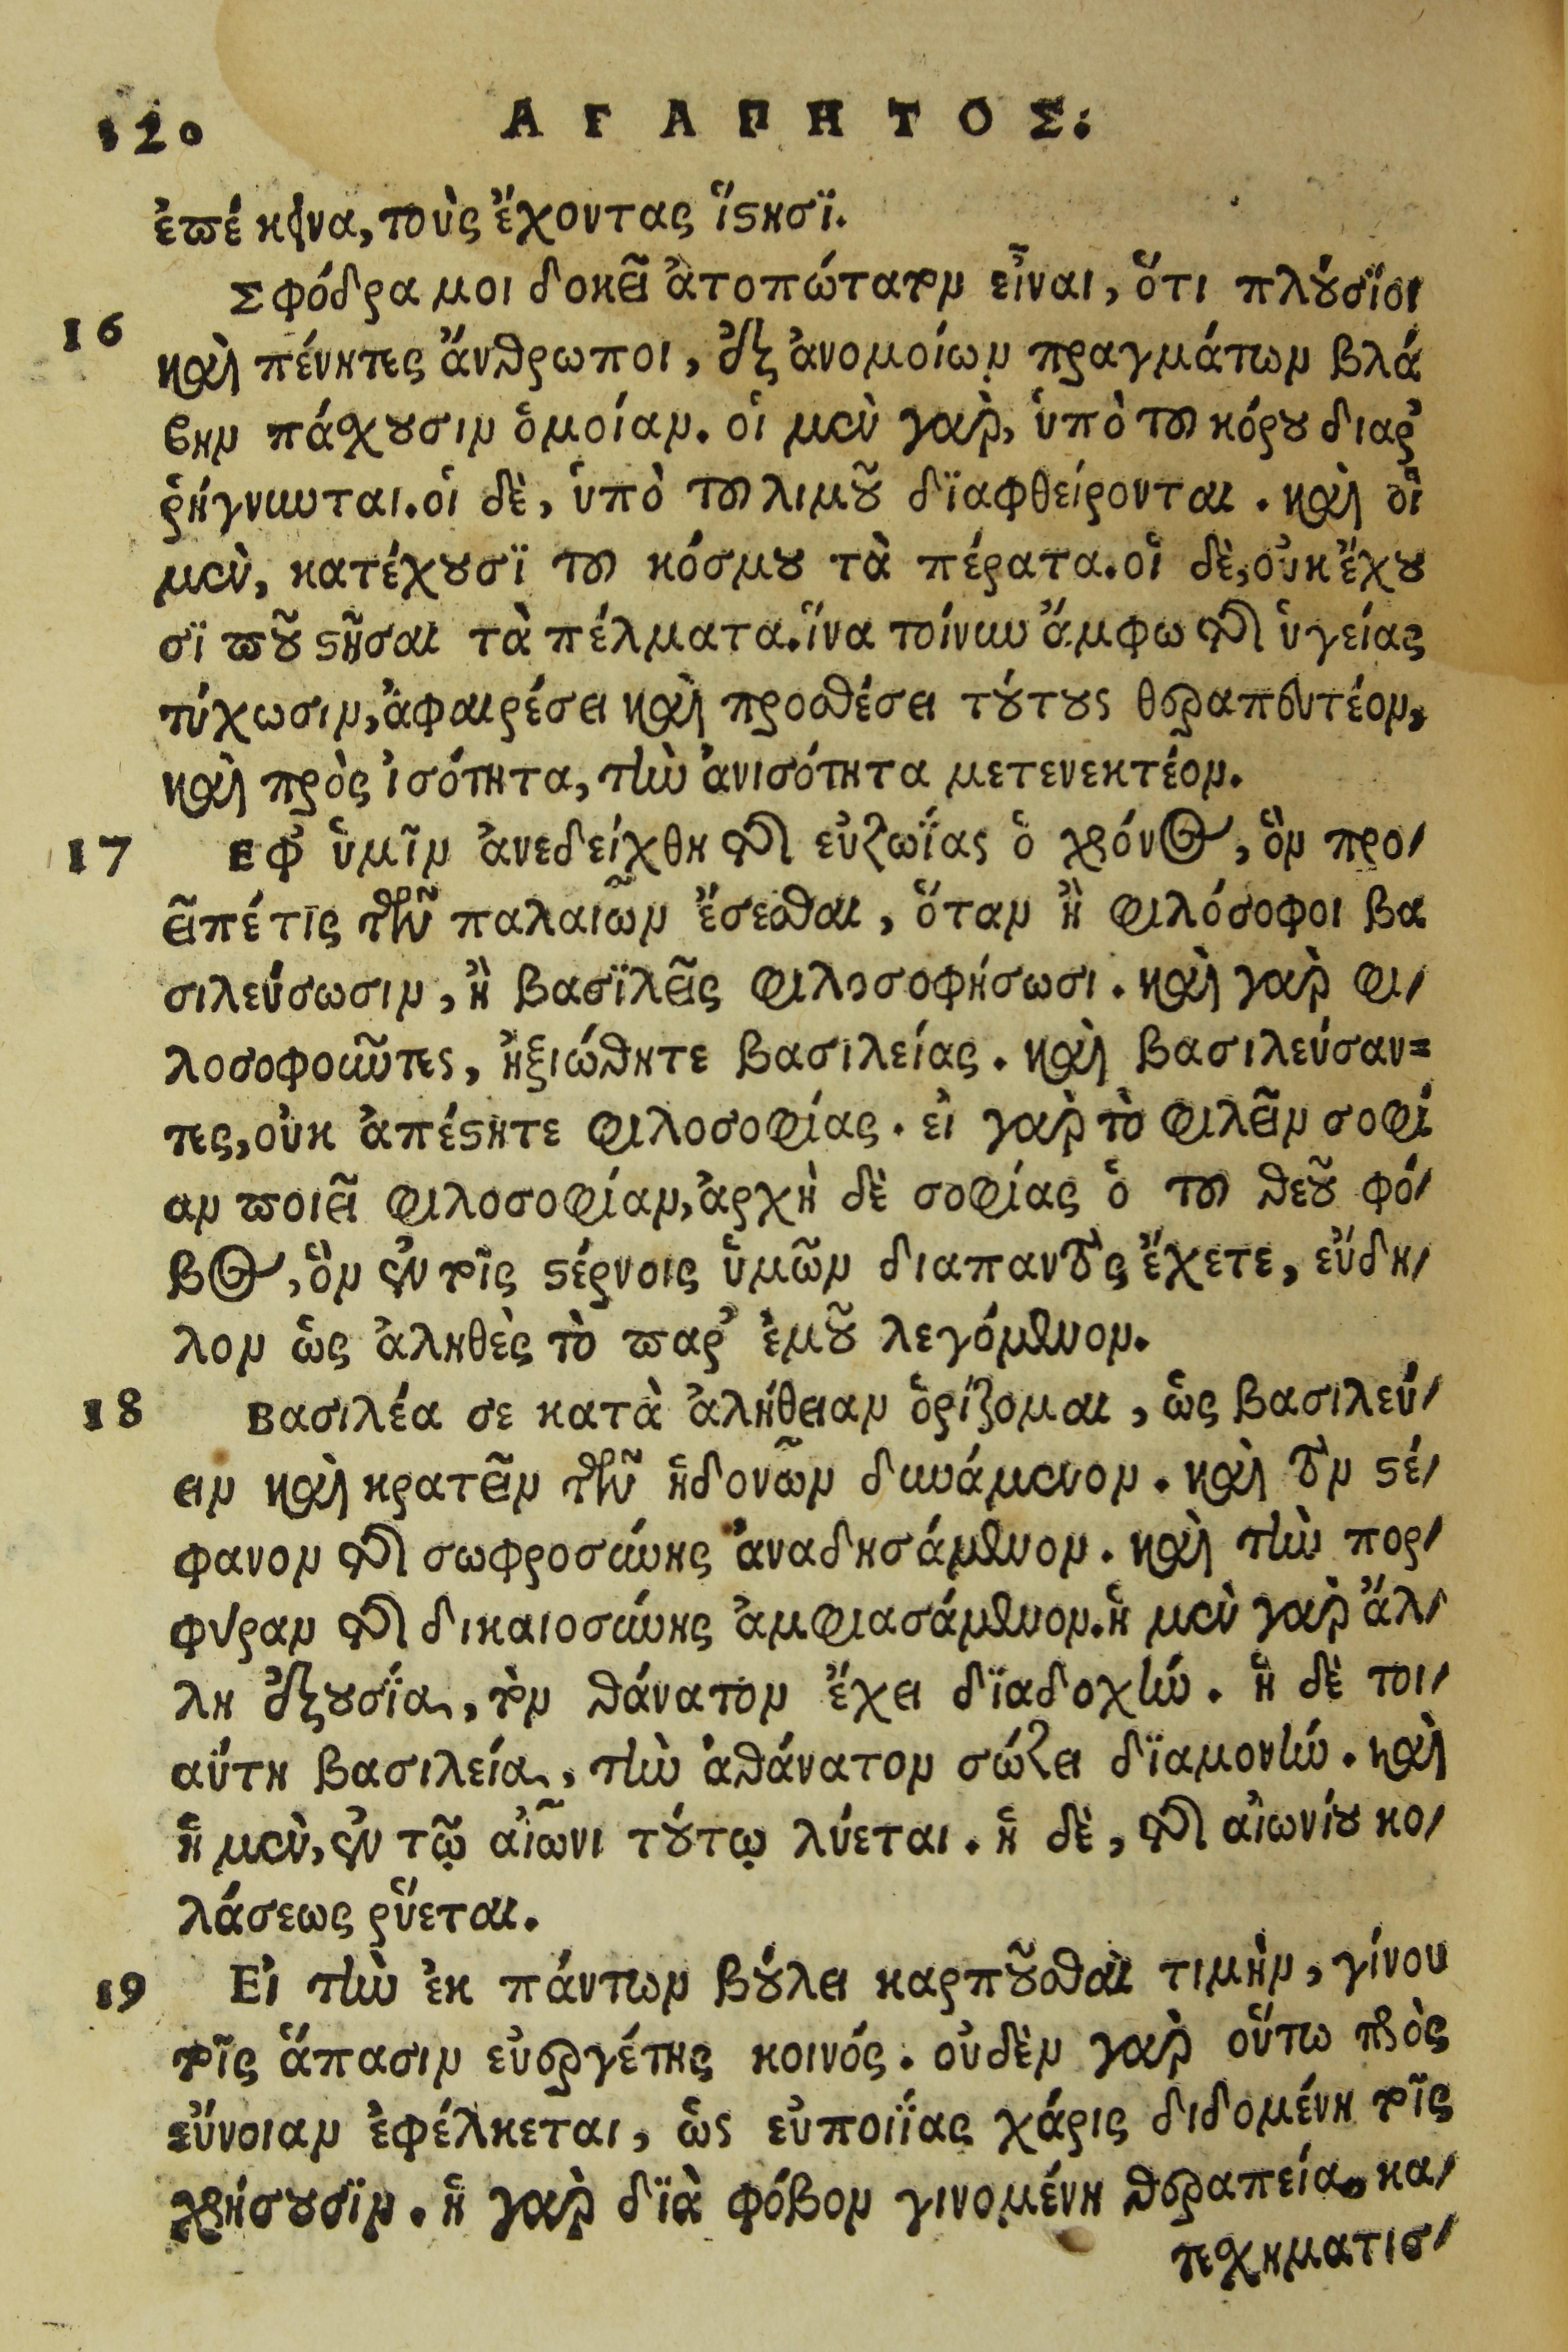 120 ΑΓΑΠΗΤΟΣ.
ἐπέκεινα, τοὺς ἔχοντας ἵστησι.
16 Σφόδρα μοι δοκεῖ ἀτοπώτατον εἶναι, ὅτι πλούσιοι
καὶ πένητες ἄνθρωποι, ἐξ ἀνομοίων πραγμάτων βλά
βην πάσχουσιν ὁμοίαν. οἱ μὲν γὰρ, ὑπὸ τοῦ κόρου διαρ
ῥήγνυνται. οἱ δὲ, ὑπὸ τοῦ λιμοῦ διαφθείρονται. καὶ οἳ
μὲν, κατέχουσι τοῦ κόσμου τὰ πέρατα. οἳ δὲ, οὐκ ἔχου
σι ποῦ στῆσαι τὰ πέλματα. ἵνα τοίνυν ἄμφω τῆς ὑγείας
τύχωσιν, ἀφαιρέσει καὶ προσθέσει τούτους θεραπευτέον,
καὶ πρὸς ἰσότητα, τὴν ἀνισότητα μετενεκτέον.
17 Εφ' ὑμῖν ἀνεδείχθη τῆς εὐζωΐας ὁ χρόνος, ὃν προ/
εῖπέ τις τῶν παλαιῶν ἔσεσθαι, ὅταν ἢ φιλόσοφοι βα
σιλεύσωσιν, ἢ βασιλεῖς φιλοσοφήσωσι. καὶ γὰρ φι/
λοσοφοῦντες, ἠξιώθητε βασιλείας. καὶ βασιλεύσαν=
τες, οὐκ ἀπέστητε φιλοσοφίας. εἰ γὰρ τὸ φιλεῖν σοφί
αν ποιεῖ φιλοσοφίαν, ἀρχὴ δὲ σοφίας ὁ τοῦ θεοῦ φό/
βος, ὃν ἐν τοῖς στέρνοις ὑμῶν διαπαντὸς ἔχετε, εὔδη/
λον ὡς ἀληθὲς τὸ παρ' ἐμοῦ λεγόμενον.
18 Βασιλέα σε κατὰ ἀλήθειαν ὁρίζομαι, ὡς βασιλεύ/
ειν καὶ κρατεῖν τῶν ἡδονῶν δυνάμενον. καὶ τὸν στέ/
φανον τῆς σωφροσύνης ἀναδησάμενον. καὶ τὴν πορ/
φύραν τῆς δικαιοσύνης ἀμφιασάμενον. ἡ μὲν γὰρ ἄλ/
λη ἐξουσία, τὸν θάνατον ἔχει διαδοχήν. ἡ δὲ τοι/
αύτη βασιλεία, τὴν ἀθάνατον σώζει διαμονήν. καὶ
ἡ μὲν, ἐν τῷ αἰῶνι τούτῳ λύεται. ἡ δὲ, τῆς αἰωνίου κο/
λάσεως ῥύεται.
19 Εἰ τὴν ἐκ πάντων βούλει καρποῦσθαι τιμὴν, γίνου
τοῖς ἅπασιν εὐεργέτης κοινός. οὐδὲν γὰρ οὕτω πρὸς
εὔνοιαν ἐφέλκεται, ὡς εὐποιΐας χάρις διδομένη τοῖς
χρήζουσιν. ἡ γὰρ διὰ φόβον γινομένη θεραπεία, κα/
τεσχηματισ/